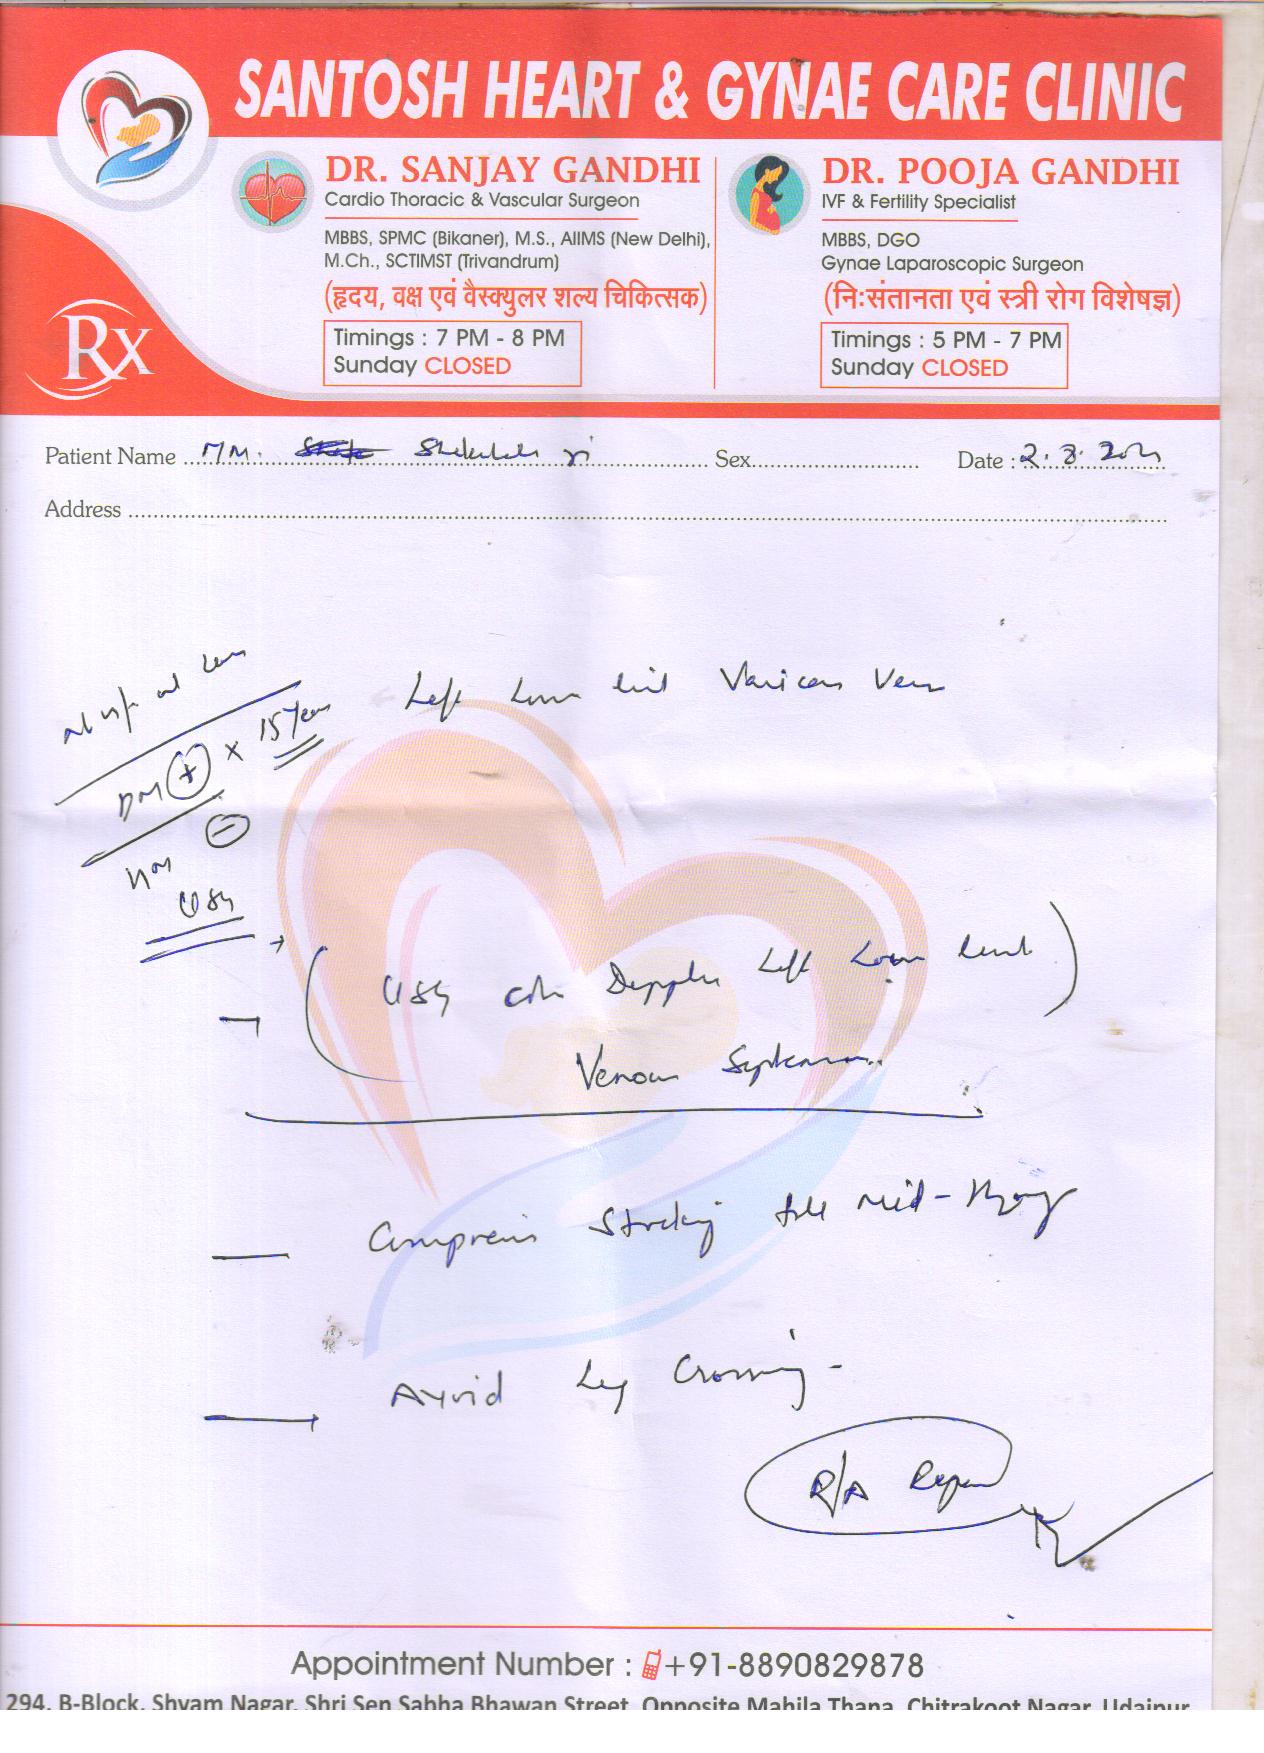 SANTOSH HEART & GYNAE CARE CLINIC
DR. SANJAY GANDHI
Cardio Thoracic & Vascular Surgeon
MBBS, SPMC (Bikaner), M.S., AIIMS (New Delhi),
M.Ch., SCTIMST (Trivandrum)
(हृदय, वक्ष एवं वैस्क्युलर शल्य चिकित्सक)
Timings : 7 PM - 8 PM
Sunday CLOSED
DR. POOJA GANDHI
IVF & Fertility Specialist
MBBS, DGO
Gynae Laparoscopic Surgeon
(निःसंतानता एवं स्त्री रोग विशेषज्ञ)
Timings : 5 PM - 7 PM
Sunday CLOSED
Rx
Patient Name Sex Date :
Address
Left Varicose Vein
DM + x 15 Years
USG
USG Doppler Left Lower Limb
Venous System
Stocking Mid-
Avoid Leg Crossing -
R/A
Appointment Number : +91-8890829878
294, B-Block, Shyam Nagar, Shri Sen Sabha Bhawan Street, Opposite Mahila Thana, Chitrakoot Nagar, Udaipur